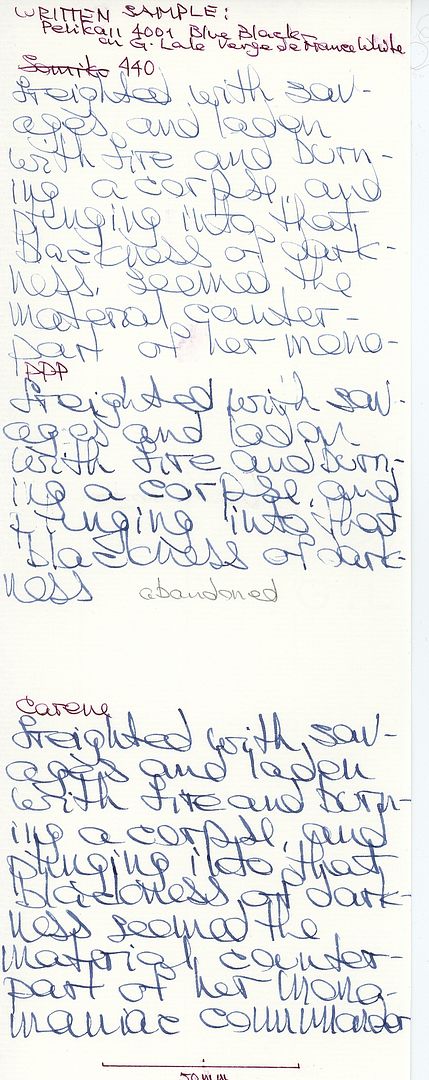 WRITTEN SAMPLE:
Pelikan 4001 Blue Black
on G. Lalo Verge de France White
Somiko 440
freighted with sav-
ages, and laden
with fire and burn-
ing a corpse, and
plunging into that
blackness of dark-
ness, seemed the
material counter-
part of her mono-
ppp
freighted with sav-
ages and laden
with fire and burn-
ing a corpse, and
plunging into that
blackness of dark-
ness abandoned
Carene
freighted with sav-
ages and laden
with fire and burn-
ing a corpse, and
plunging into that
blackness of dark-
ness seemed the
material counter-
part of her mono-
maniac commander
50mm